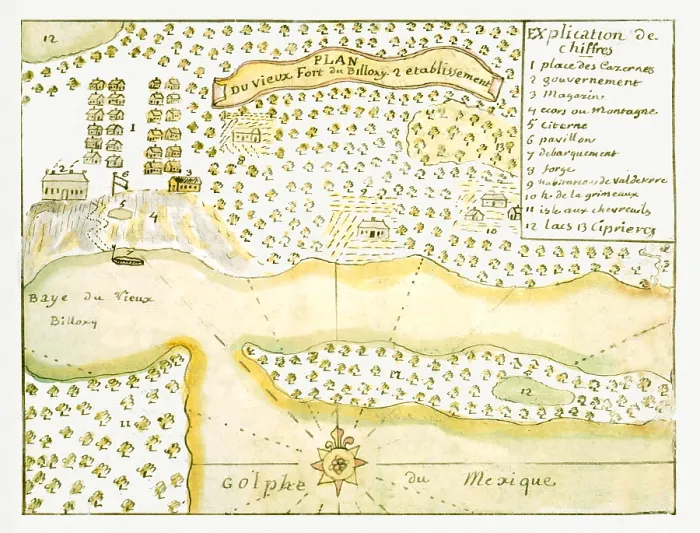 PLAN
Du Vieux Fort du Billoxy. 2 etablissement
EXplication de
chiffres
1 place des Cazernes
2 gouvernement
3 Magazin
4 ecors ou Montagne
5 Citerne
6 pavillon
7 debarquement
8 forge
9 habitation de Valdeterre
10 h. de la grimeaux
11 isle aux chevreuils
12 Lacs 13 Cipriercs
12
1
2
6
3
5
4
7
8
9
10
13
Baye du Vieux
Billoxy
11
12
Golphe du Mexique